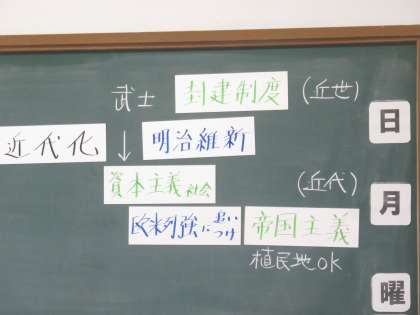 武士 封建制度 (近世)
近代化 ↓ 明治維新
資本主義社会 (近代)
欧米列強に追いつけ 帝国主義
植民地OK
日
月
曜